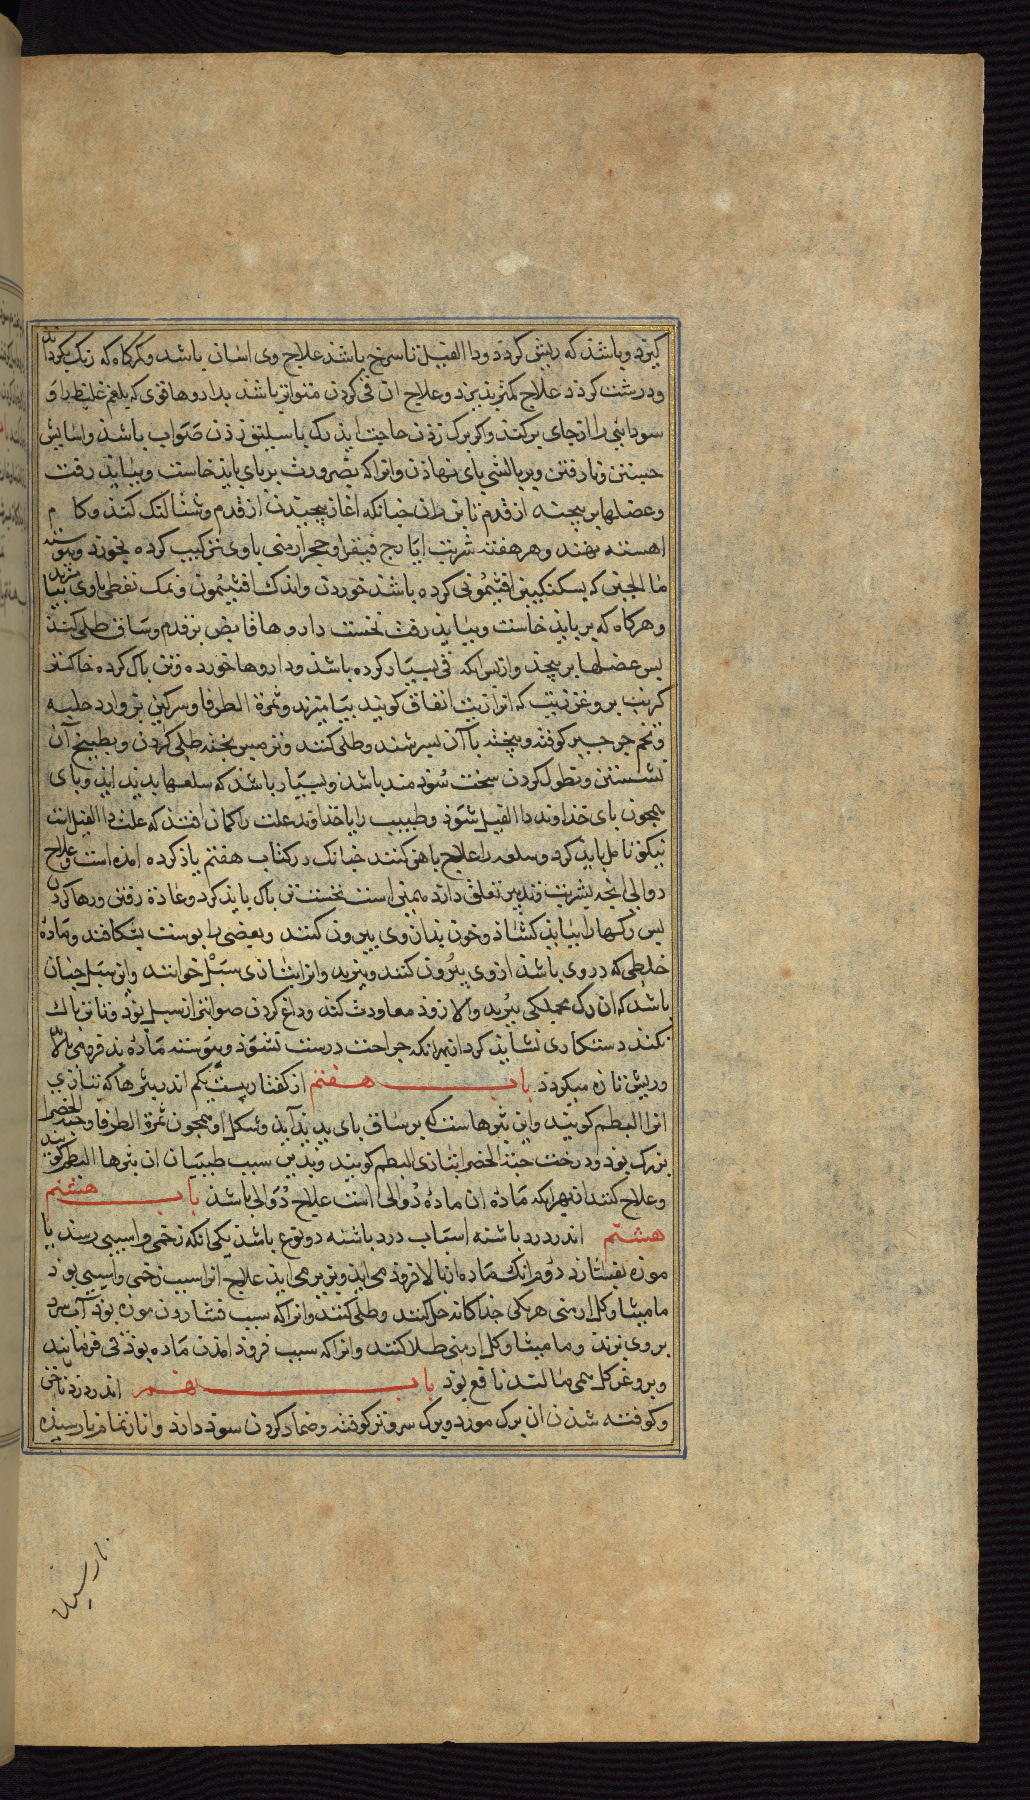 کیرد و باشد که ریش کردد و داء الفیل تا سرخ باشد علاج وی اسان باشد و هرکاه که رنک بکرداند
و درشت کردد علاج کمتر پذیرد و علاج ان قی کردن متواتر باشد بداروهاء قوی که بلغم غلیظ را و
سودایی را از جای برکند و کر برک زدن حاجت اید رک باسلیق زدن صواب باشد و اسایش
جستن و نارفتن و بر بالشی پای نهادن و انرا که بضرورت بر پای باید خاست و بباید رفت
و عضلها بر پیچد از قدم تا بن ران چنانکه اغاز پیچیدن از قدم و شتالنک کند و کام
اهسته نهند و هر هفته شربت ایارج فیقرا و حجر ارمنی با وی ترکیب کرده بخورد و پیوسته
ما الجبن که بسکنکبین افتیمونی کرده باشد خوردن و اندک افتیمون و نمک نفطی با وی بیامیزند
و هرکاه که بر باید خاست و بباید رفت نخست داروها قابض بر قدم و ساق طلی کند
پس عضلها بر پیچد و از پس انکه قی بسیار کرده باشد و داروها خورده و تن پاک کرده خاکستر
کرنب بروغن زیت که انرا زیت انفاق کویند بیامیزند و ثمرة الطرفا و سرکین بز و ارد حلبه
و تخم جرجیر کوفته و پیخته با آن بسرشند و طلی کنند و ترمس پخته طلی کردن و بطبیخ آن
نشستن و نطول کردن سخت سودمند باشد و بسیار باشد که سلعها پدید اید و پای
همچون پای خداوند داء الفیل شود و طبیب را یا خداوند علت را کمان افتد که علت داء الفیل است
نیکو تامل باید کرد و سلعه را علاج باهن کنند چنانک در کتاب هفتم یاد کرده امده است و علاج
دوالی انچه بشربت و تدبیر تعلق دارد همین است نخست تن پاک باید کرد و عادة رفتن و رها کردن
پس رکها را بباید کشاد و خون بدان وی بیرون کنند و بعضی را پوست بشکافند و مادۀ
خلطی که در وی باشد از وی بیرون کنند و ببرید و انرا بتازی سَبَل خوانند و این سبل چنان
باشد که ان رک بجملکی ببرید و الا زود معاودت کند و داغ کردن صوابتر از سبل بود و تا تن پاک
نکند دستکاری نشاید کرد از بهر انکه جراحت درست نشود و پیوسته ماده بدو فرود می پالاید
و ریش تازه میکردد باب هفتم از کفتار بیست و یکم اندر بثرها که بتازی
انرا البطم کویند و این بثرهاست که بر ساق پای پدید آید و شکل او همچون ثمرة الطرفا و حبة الخضرا
بزرک بود و درخت حبة الخضرا بتازی البطم کویند و بدین سبب طبیبان ان بثرها البطم کویند
و علاج کنند از بهر انکه مادۀ ان مادۀ دوالی است علاج دوالی باشد باب هشتم
هشتم اندر درد پاشنه اسباب درد پاشنه دو نوع باشد یکی انکه زخمی و اسیبی رسد یا
موزه بفشارد دوم انک ماده از بالا فروذ می اید و بر می اید علاج انرا سبب زخمی و اسیبی بود
مامیثا و کل ارمنی هر یکی جداکانه حل کنند و طلی کنند و انرا که سبب فشاردن موزه بود آب سرد
بر وی زند و مامیثا و کل ارمنی طلا کنند و انرا که سبب فرود امدن ماده بود قی فرمایند
و بروغن کل همی مالند نافع بود باب نهم اندر درد ناخن
و کوفته شدن ان برک مورد و برک سرو تر کوفته و ضماد کردن سود دارد و انار تمام نارسیده
نارسیده